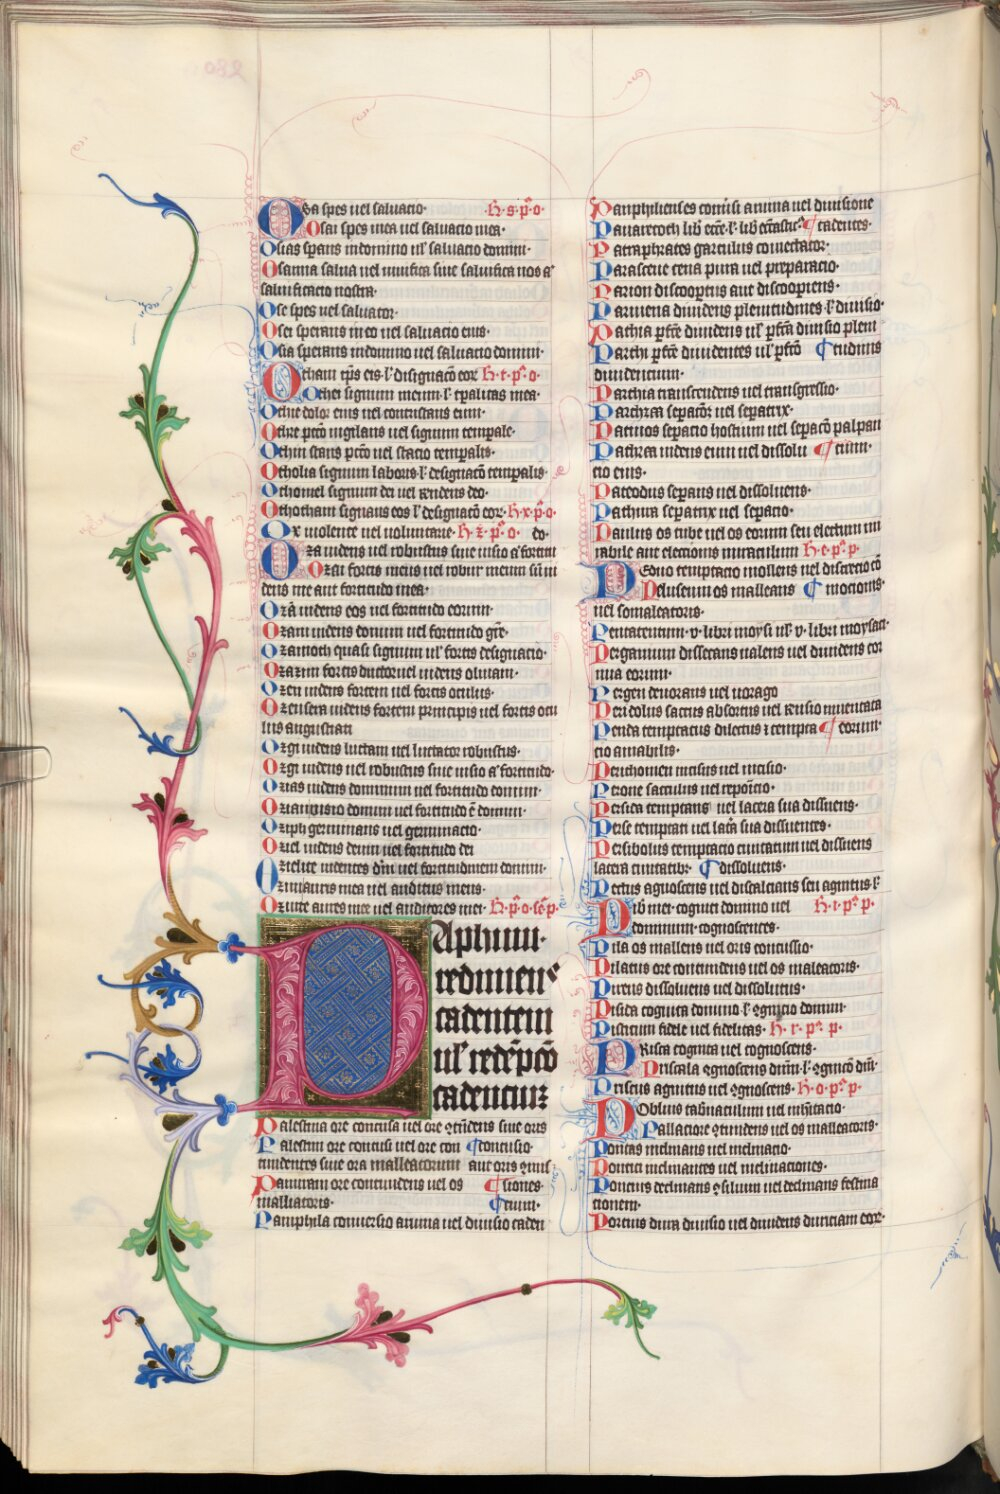 Osa spes uel saluacio· ·h·s·p·o·
Osai spes mea uel saluacio mea·
Osias spans indomino ul' saluacio domini·
Osanna salua uel uiuifica siue saluifica nos a'
saluificacio nostra·
Ose spes uel saluator·
Osei sperans in eo uel saluacio eius·
Osia sperans indomino uel saluacio domini·
h·t·p·o·
Othei signum meum l' tpalitas mea·
Othie dolor eius uel contristans eum·
Othre pctо uigilans uel signum tempale·
Othin stans pcto uel stacio tempalis·
Otholia signum laboris l' designacō tempalis·
Othoniel signum dei uel deo·
Othotham signans eos l' designacō eor· h·x·p·o·
Ox uiolente uel uoluntarie· h·z·p·o· do·
Oza uidens uel robustus siue uisio a' fortitu
Ozai fortis meus uel robur meum
dens me aut fortitudo mea·
Oza uidens eos uel fortitudo eorum·
Ozam uidens donum uel fortitudo gre·
Ozamoth quasi signum ul' fortis designacio·
Ozazim fortis ductor uel uidens oliuam·
Ozen uidens fortem uel fortis oculus·
Ozensera uidens fortem principis uel fortis ocu
lus angustiati
Ozgi uidens luctam uel luctator robustus·
Ozgi uidens uel robustus siue uisio a' fortitudo·
Ozias uidens dominum uel fortitudo domini·
Ozian uisio domini uel fortitudo ē domini·
Oziph germinans uel germinacio·
Oziel uidens deum uel fortitudo dei
Ozielite uidentes dm̄ uel fortitudinem domini·
Ozni auris mea uel auditus meus·
Oznite aures mee uel auditores mei· h·p·o·
Paphnui·
redimens
cadentem
ul' redēpcō
cadencium
Palestina ore concisa uel ore siue oris
Palestini ore concisi uel ore con ¶ concisio·
tundentes siue ora malleatorum aut oris
Pamtam ore contundens uel os ¶ ciones·
malliatoris· ¶ cium·
Pamphila conuersio anima uel diuisio caden
Pamphilienses comisti anima uel diuisione
Panareroth lib' ecce l' lib' ecclasstic' ¶ cadentes·
Paraphrates garculus coniectator·
Parasceue cena pura uel preparacio·
Parion discooperiens aut discoopiens·
Parmena diuidens plenitudines l' diuisio·
Pathia pfce diuidens ul' pfca diuisio pleni
Parthi pfce diuidentes ul' pfcō ¶ tudinis
diuidencium·
Parthia transcendens uel transgressio·
Parthia sepator uel sepatrix·
Patmos sepacio hostium uel sepacō palpan
Pathea uidens eum uel dissolu ¶ cium·
cio eius·
Pateodus sepans uel dissoluens·
Pathura sepatrix uel sepacio·
Paulus os tube uel os eorum seu electum mi
rabile aut electionis miraculum h·e·p·p·
Pedno temptacio mollens uel discrecio cō
Pelusium os malleans ¶ mocionis·
uel somaleatoris·
Pentateucum ·v· libri moysi ul' ·v· libri moysaci·
Pergamum dissecans ualens uel diuidens cor
nua eorum·
Pergen deuorans uel uorago
Peridolus sacrus absorbens uel
Persida temptatus dilectus ¶ eorum·
cio amabilis·
Perichomen incisus uel incisio·
Perone sacculus uel repoicio·
Persica temptans uel lacera sua dissuens·
Perse temptati uel lata sua dissuentes·
Persibolus temptacio ciuitatum uel dissuens
lacera ciuitatibus ¶ dissoluens·
Petrus agnoscens uel discalcians seu agnitus l'
Pibmei· cogniti domino uel h·i·p·p·
dominum cognoscentes·
Pila os mallens uel oris contussio·
Pilatus ore contundens uel os maleatoris·
Pirens dissoluens uel dissolutus·
Pisida cognita domino l' agnicio domini·
Pisticum fidele uel fidelitas· h·r·p·p·
Prisca cognita uel cognoscens·
Priscala agnoscens
Priscus agnitus uel agnoscens· h·o·p·p·
Poblius tabnaculum uel inhitacio·
Pallaciore uel os malleatoris·
Pontus inclinans uel inclinacio·
Pontici inclinantes uel inclinaciones·
Poncius declinans asilium uel declinans festina
cionem·
Porcius dura diuisio uel diuidens duriciam eor·